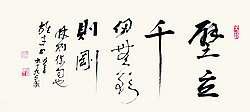 壁立
千
仞無欲
則剛
林則徐句也